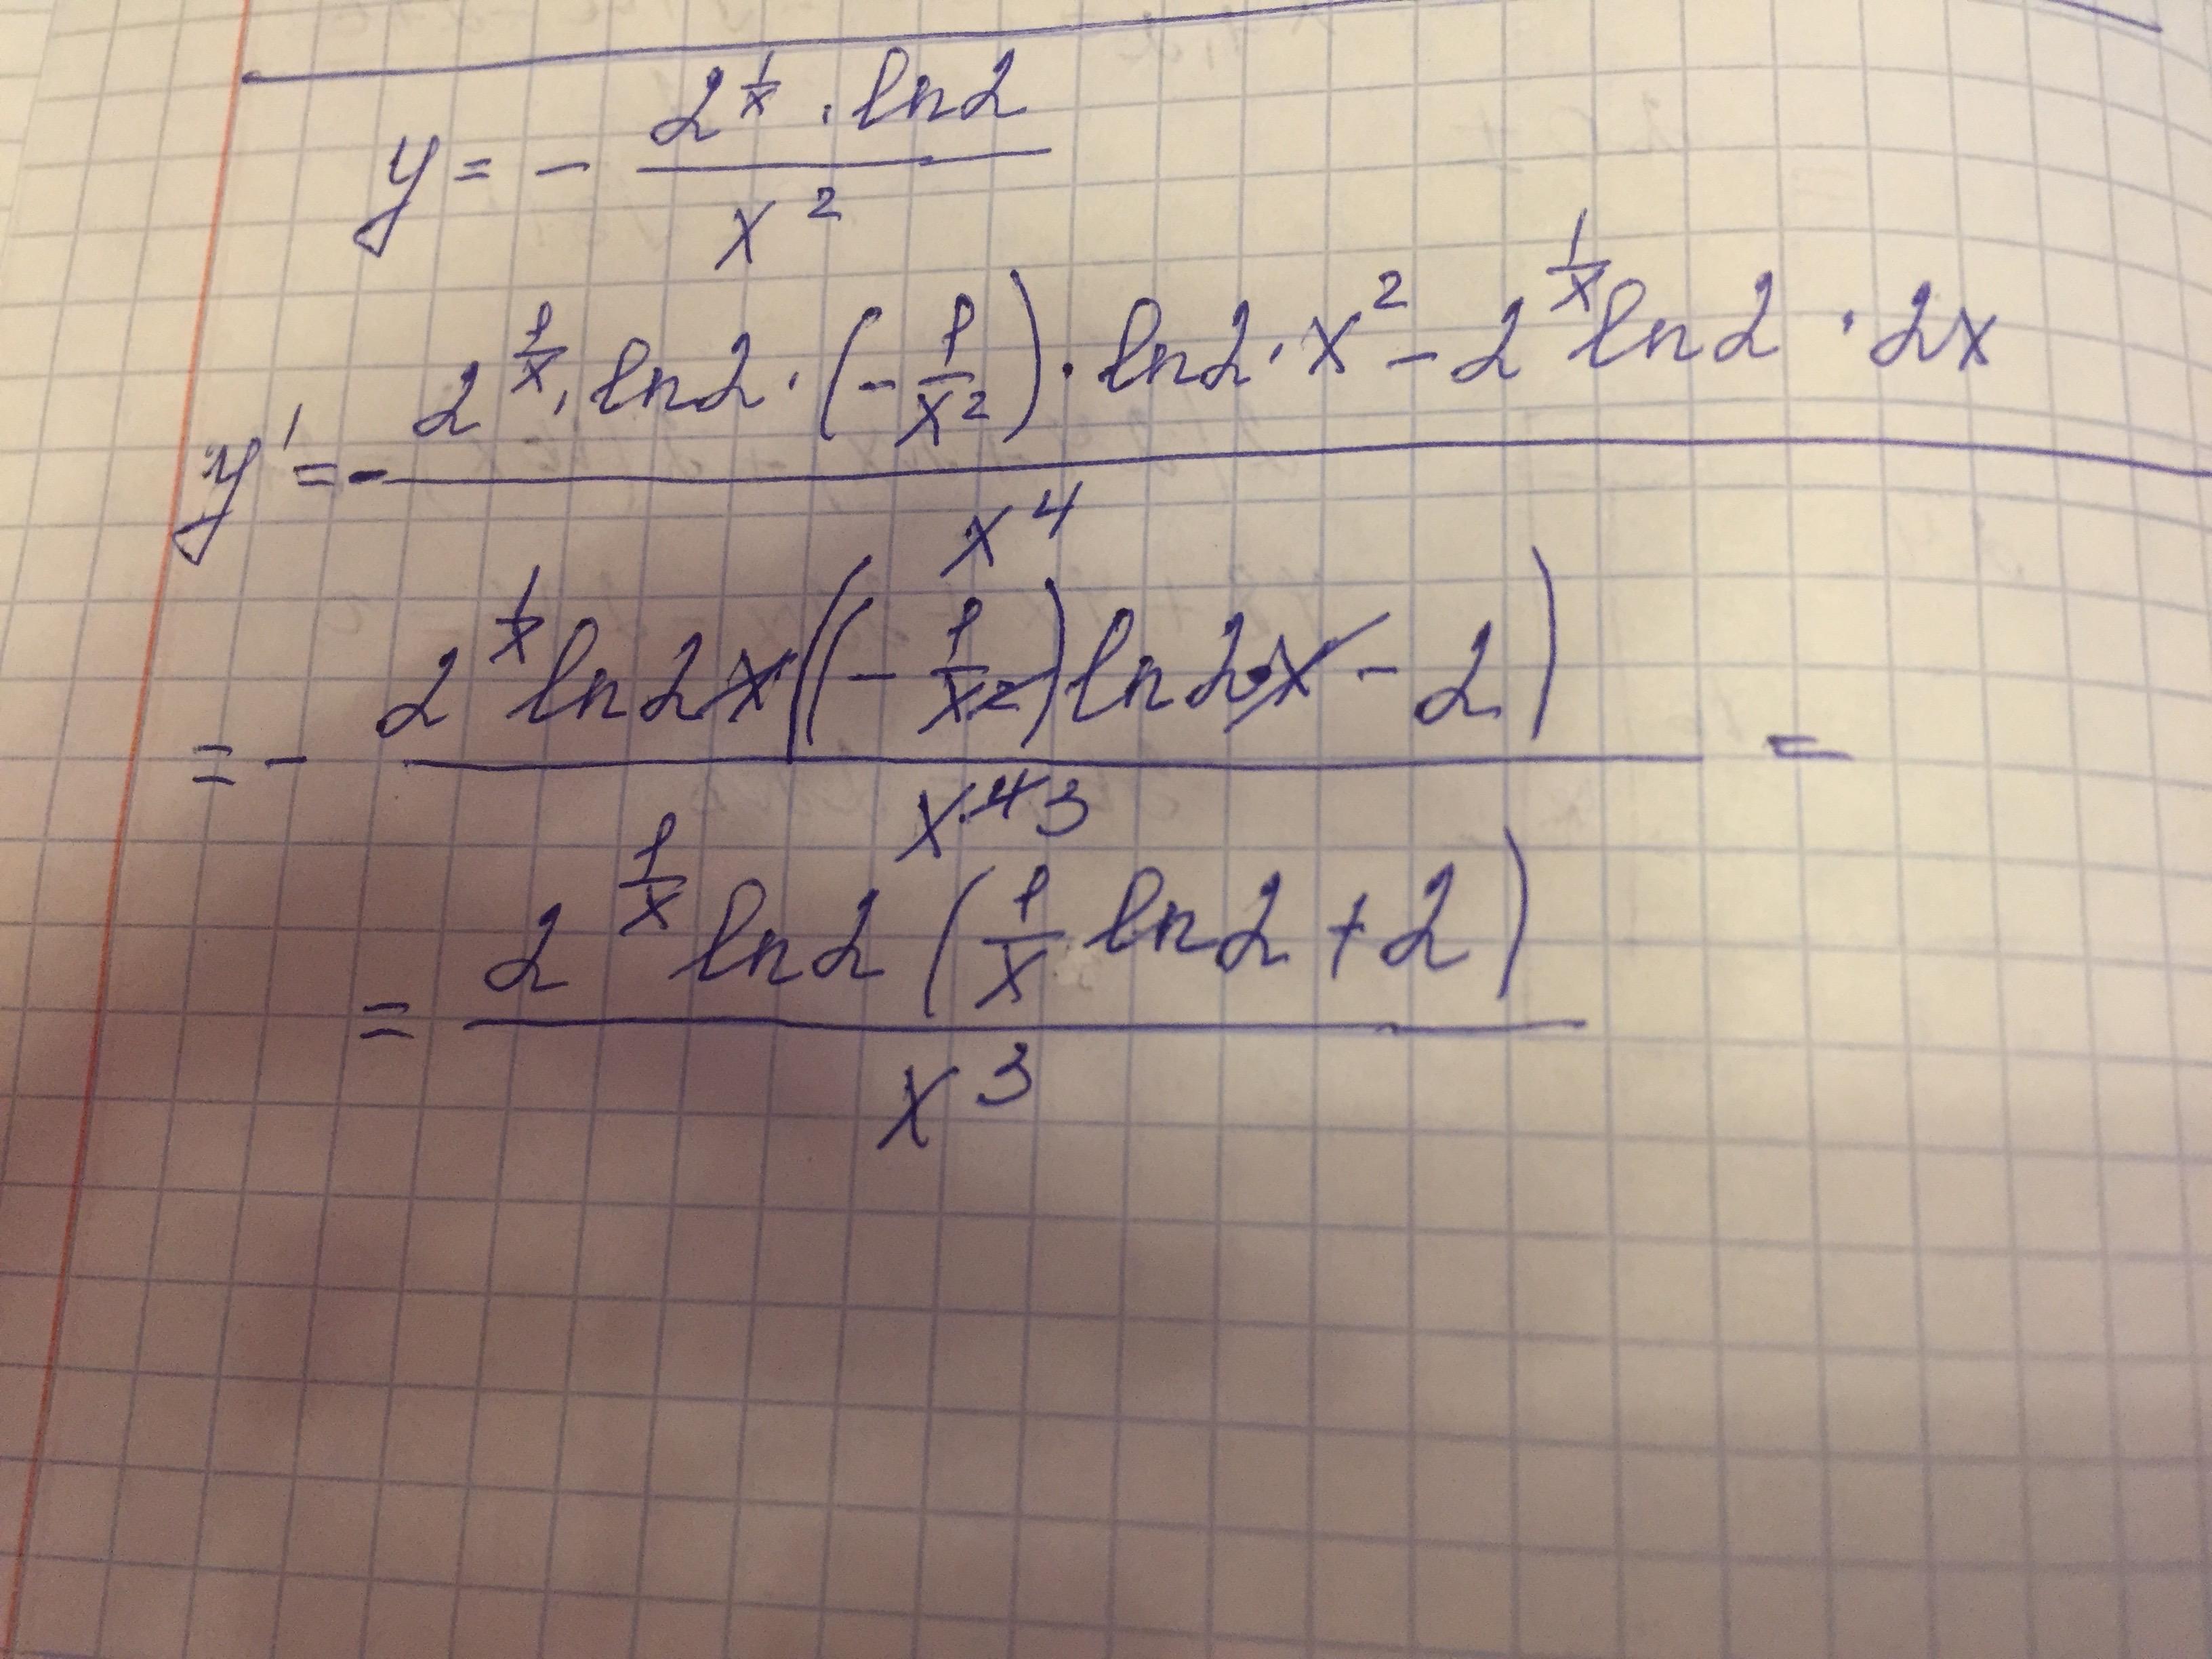 y = - (2^(1/x) · ln2) / x²
y' = - (2^(1/x) · ln2 · (-1/x²) · ln2 · x² - 2^(1/x) ln2 · 2x) / x⁴
= - (2^(1/x) ln2 x((-1/x²) ln2 · x - 2)) / x⁴ ³ =
= (2^(1/x) ln2 (1/x ln2 + 2)) / x³